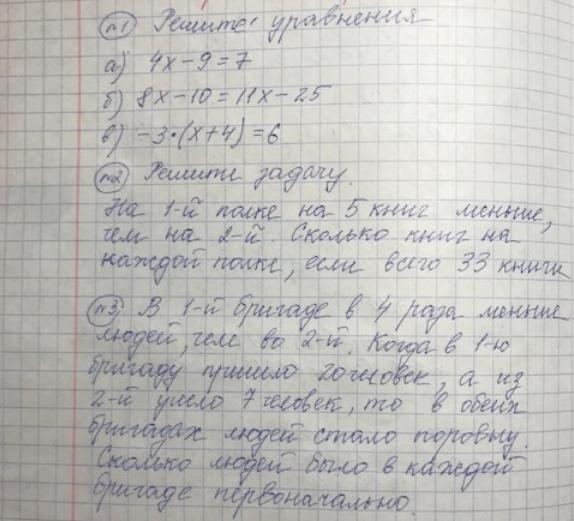 №1 Решите уравнения
а) 4х-9=7
б) 8х-10=11х-25
в) -3·(х+4)=6
№2 Решите задачу.
На 1-й полке на 5 книг меньше,
чем на 2-й. Сколько книг на
каждой полке, если всего 33 книги
№3 В 1-й бригаде в 4 раза меньше
людей, чем во 2-й. Когда в 1-ю
бригаду пришло 20 человек, а из
2-й ушло 7 человек, то в обеих
бригадах людей стало поровну.
Сколько людей было в каждой
бригаде первоначально.